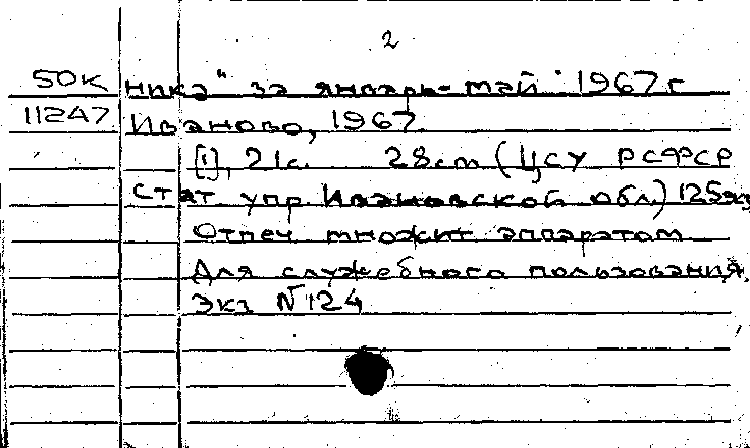 2
50К ника" за январь-май 1967 г
11247 Иваново, 1967
[1], 21с. 28 см (ЦСУ РСФСР
Стат упр Ивановской обл.) 125 экз
Отпеч множит аппаратом
Для служебного пользования.
Экз N 124